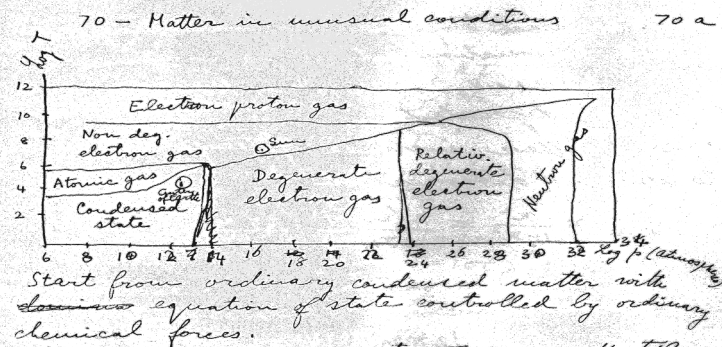 70 - Matter in unusual conditions 70 a
log T
12
Electron proton gas
10
Non deg.
electron gas
8
Sun
6
Atomic gas
Degenerate
electron gas
Relativ.
degenerate
electron
gas
Neutron gas
4
Condensed
state
2
6 8 10 12 14 16 18 20 22 24 26 28 30 32 34 Log p (atmosphere)
Start from ordinary condensed matter with
equation of state controlled by ordinary
chemical forces.